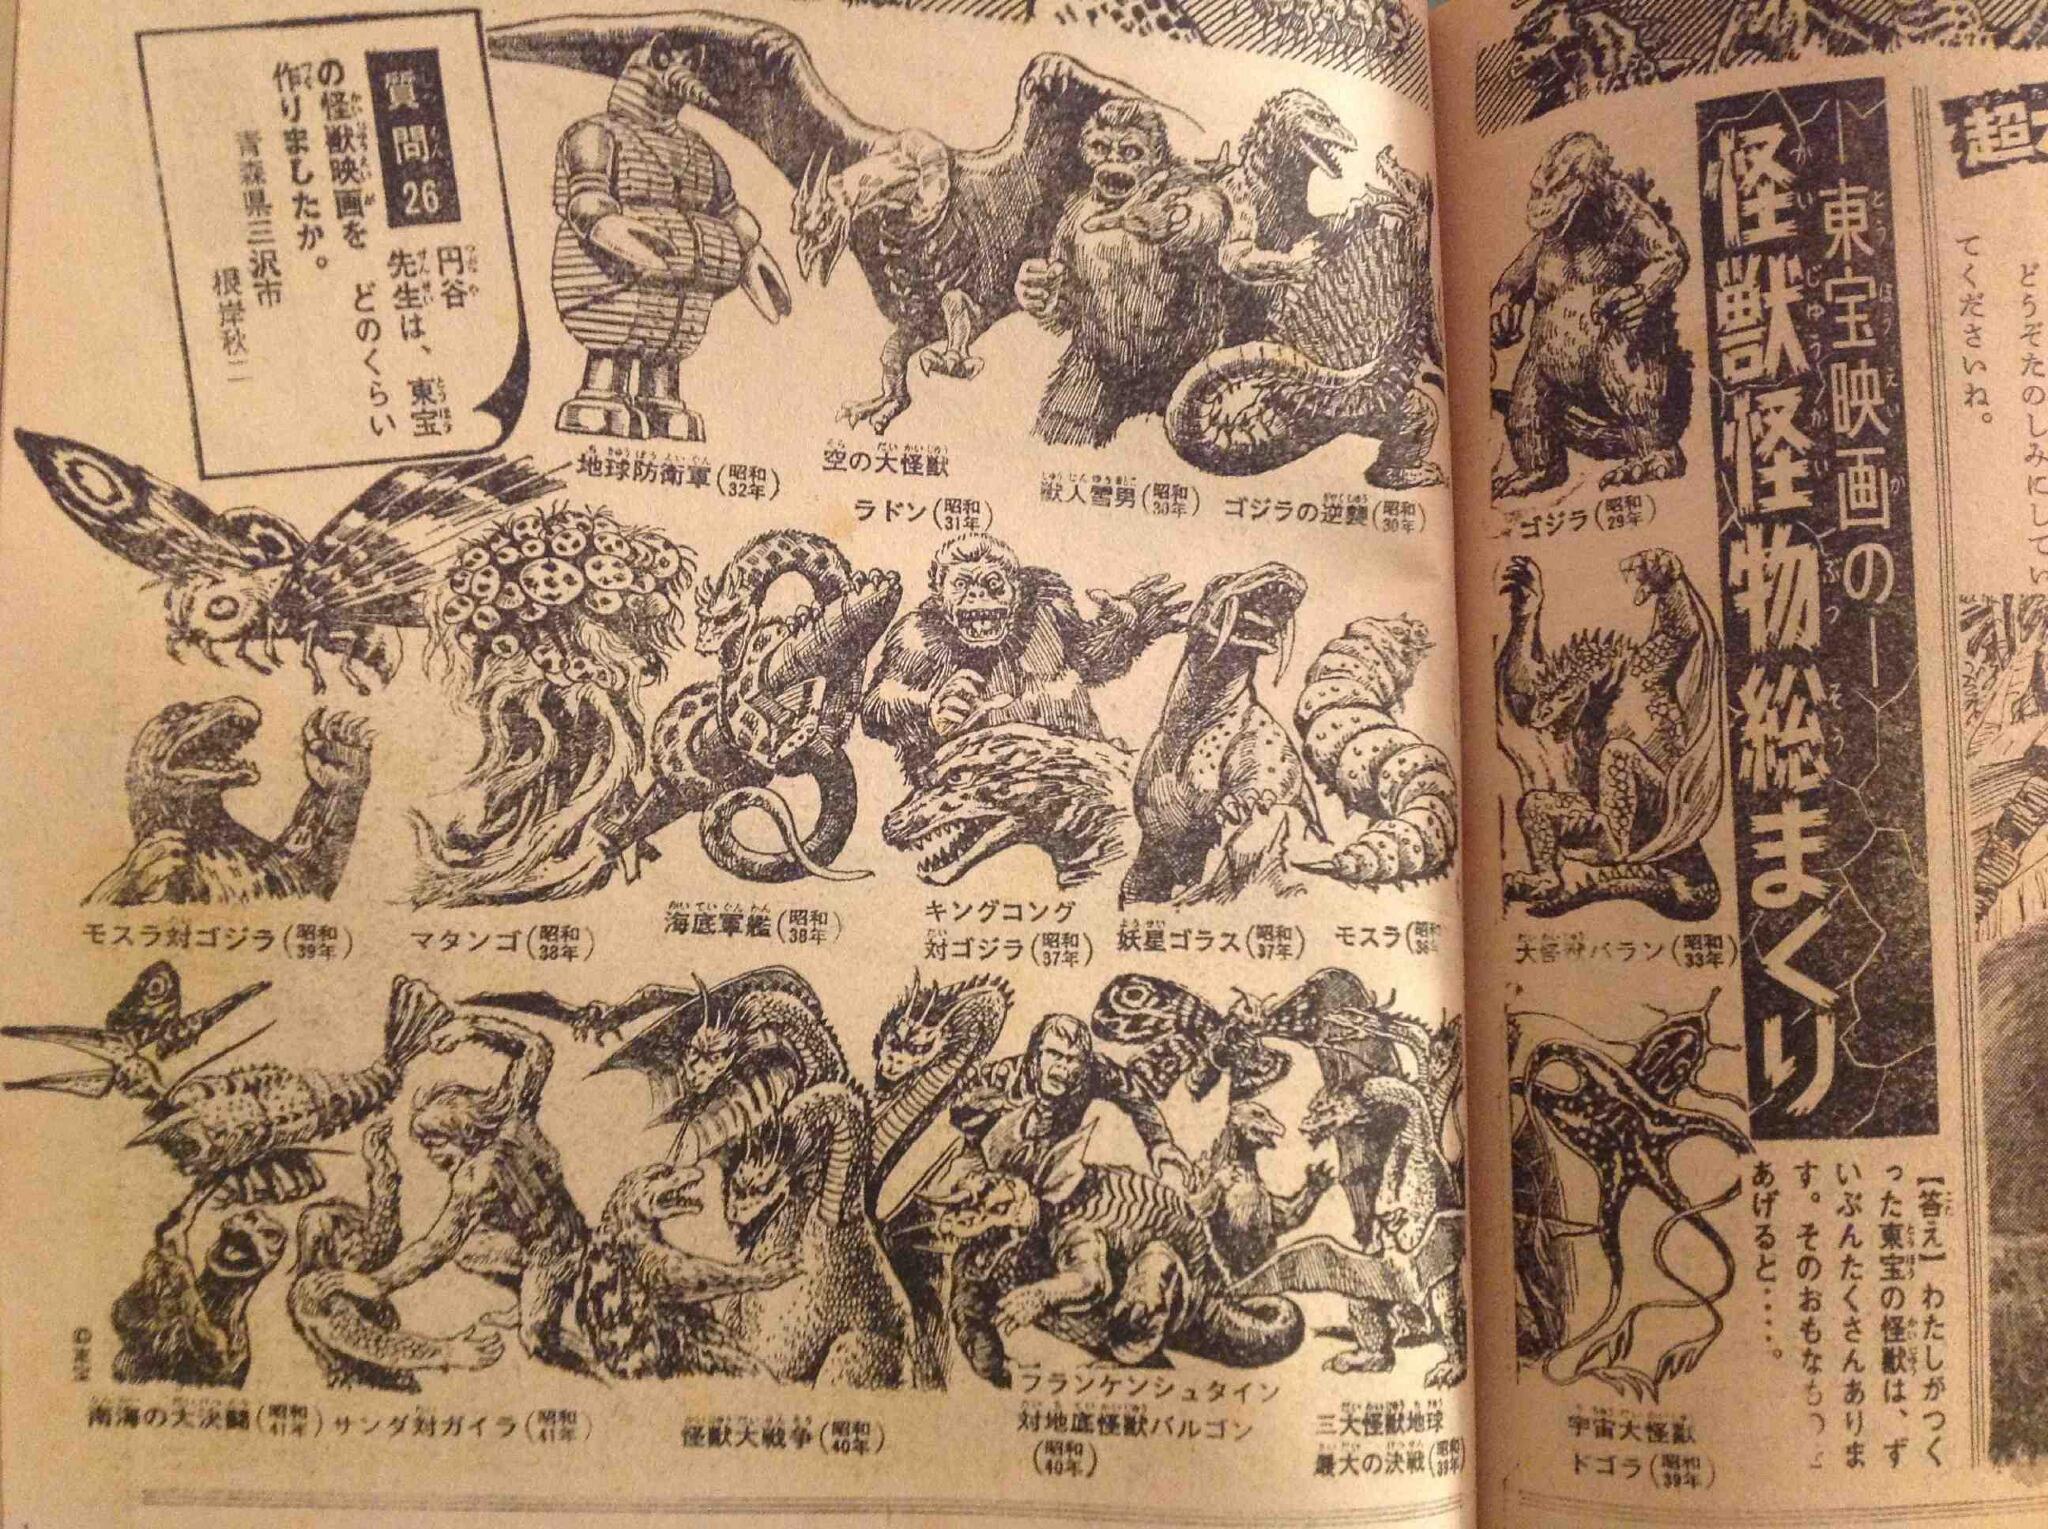 超
どうぞたのしみにしてい
てくださいね。
―東宝映画の―
怪獣怪物総まくり
【答え】わたしがつく
った東宝の怪獣は、ず
いぶんたくさんありま
す。そのおもなも
あげると‥‥‥。
質問26
円谷先生は、東宝
の怪獣映画を どのくらい
作りましたか。
青森県三沢市
根岸秋二
ゴジラ(昭和29年)
ゴジラの逆襲(昭和30年)
獣人雪男(昭和30年)
空の大怪獣
ラドン(昭和31年)
地球防衛軍(昭和32年)
大怪獣バラン(昭和33年)
モスラ(昭和
妖星ゴラス(昭和37年)
キングコング
対ゴジラ(昭和37年)
海底軍艦(昭和38年)
マタンゴ(昭和38年)
モスラ対ゴジラ(昭和39年)
宇宙大怪獣
ドゴラ(昭和39年)
三大怪獣地球
最大の決戦(昭和39年)
フランケンシュタイン
対地底怪獣バルゴン
(昭和40年)
怪獣大戦争(昭和40年)
サンダ対ガイラ(昭和41年)
南海の大決闘(昭和41年)
©東宝